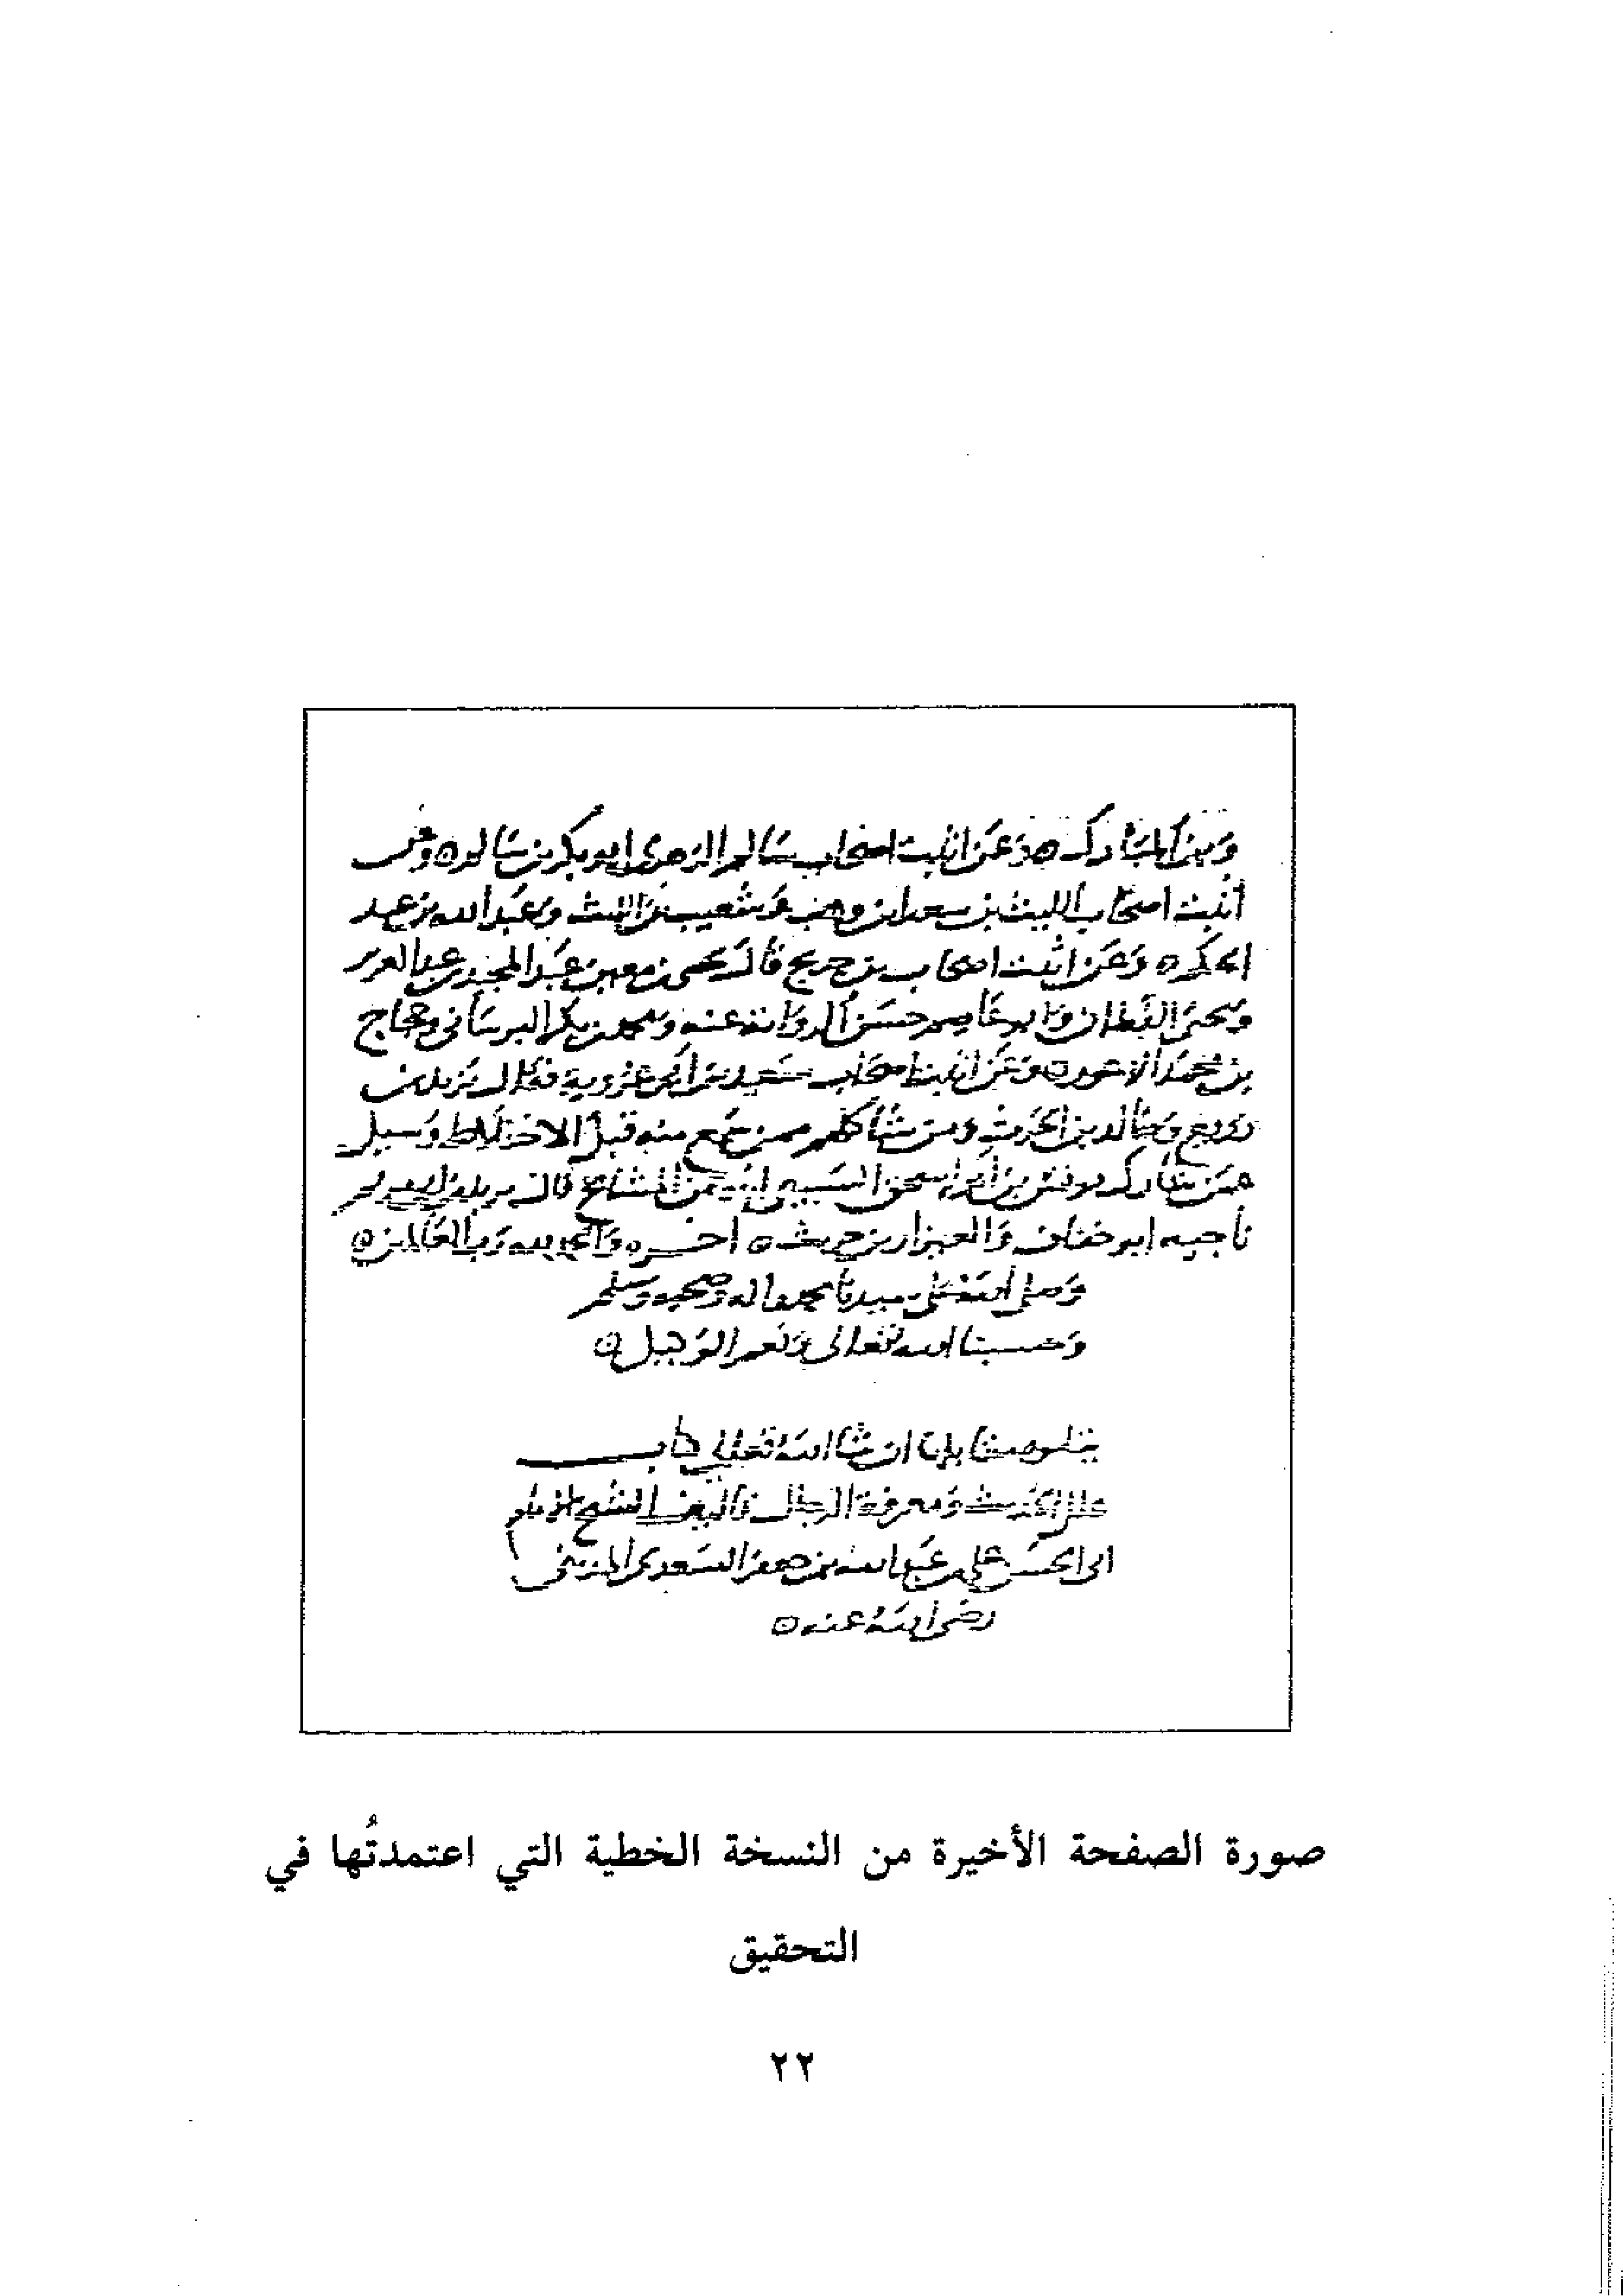 وبن المبارك ه وعن اثبت اصحاب سالم الزهرى ابو بكر بن سالم ه وعن
اثبت اصحاب الليث بن سعد ابن وهب وشعيب بن الليث وعبد الله بن عبد
الحكم ه وعن اثبت اصحاب بن جريج قال يحيى بن معين عبد المجيد بن عبد العزيز
ويحيى القطان وابو عاصم حسن الرواية عنه ومحمد بن بكر البرساني وحجاج
بن محمد الاعور ه وعن اثبت اصحاب سعيد بن ابي عروبة فقال يزيد بن
زريع وخالد بن الحرث ومن شاكلهم ممن سمع منه قبل الاختلاط وسيل
عمن شارك يونس بن ابي اسحق السبيعي من المشايخ قال
ناجيه ابو خفاف والعيزار بن حريث ه اخره والحمد لله رب العالمين ه
وصلى الله على سيدنا محمد واله وصحبه وسلم
وحسبنا الله تعالى ونعم الوكيل ه
يتلوه ان شا الله تعالى كتاب
علل الحديث ومعرفة الرجال تاليف الشيخ الامام
ابى الحسن علي بن عبد الله بن جعفر السعدى المديني
رضى الله عنه ه
صورة الصفحة الأخيرة من النسخة الخطية التي اعتمدتُها في
التحقيق
٢٢